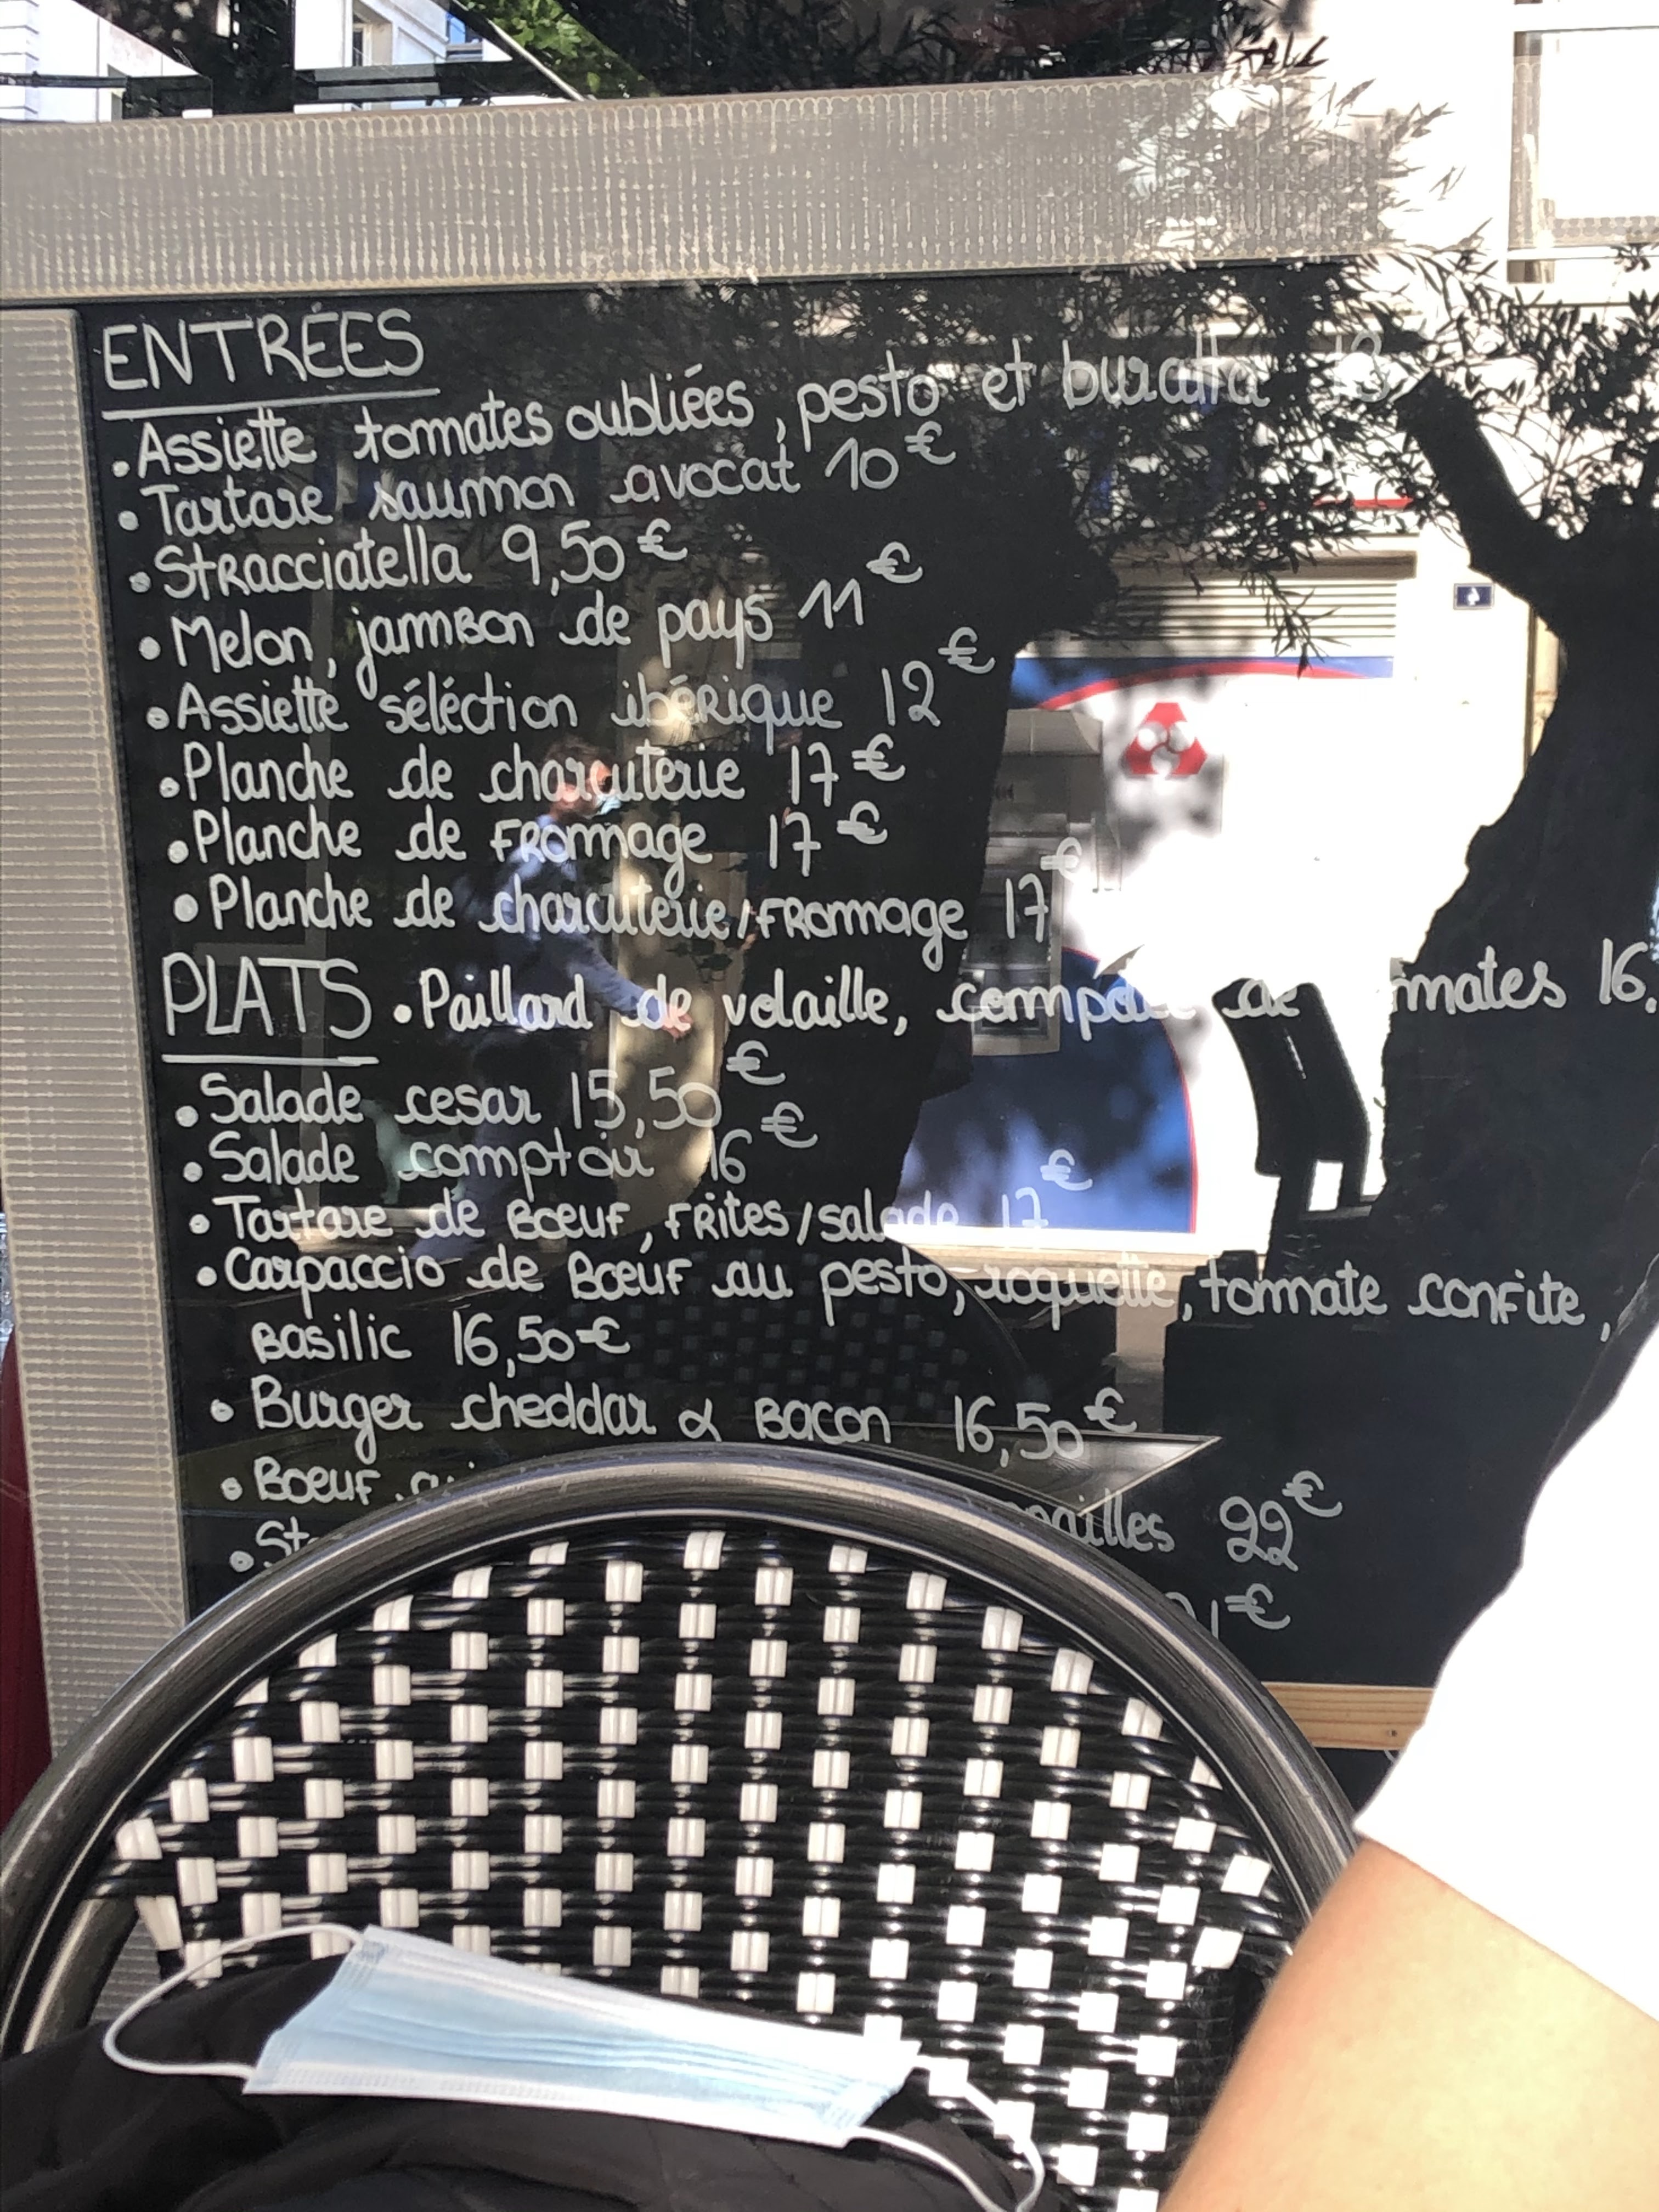 ENTRÉES
• Assiette tomates oubliées, pesto et buratta 13
• Tartare saumon avocat 10€
• Stracciatella 9,50€
• Melon, jambon de pays 11€
• Assiette séléction ibérique 12€
• Planche de charcuterie 17€
• Planche de fromage 17€
• Planche de charcuterie/fromage 17€
PLATS • Paillard de volaille, de 16.
• Salade cesar 15,50€
• Salade comptoir 16€
• Tartare de boeuf, frites/salade 17€
• Carpaccio de boeuf au pesto, roquette, tomate confite,
basilic 16,50€
• Burger cheddar & bacon 16,50€
• Boeuf 22€